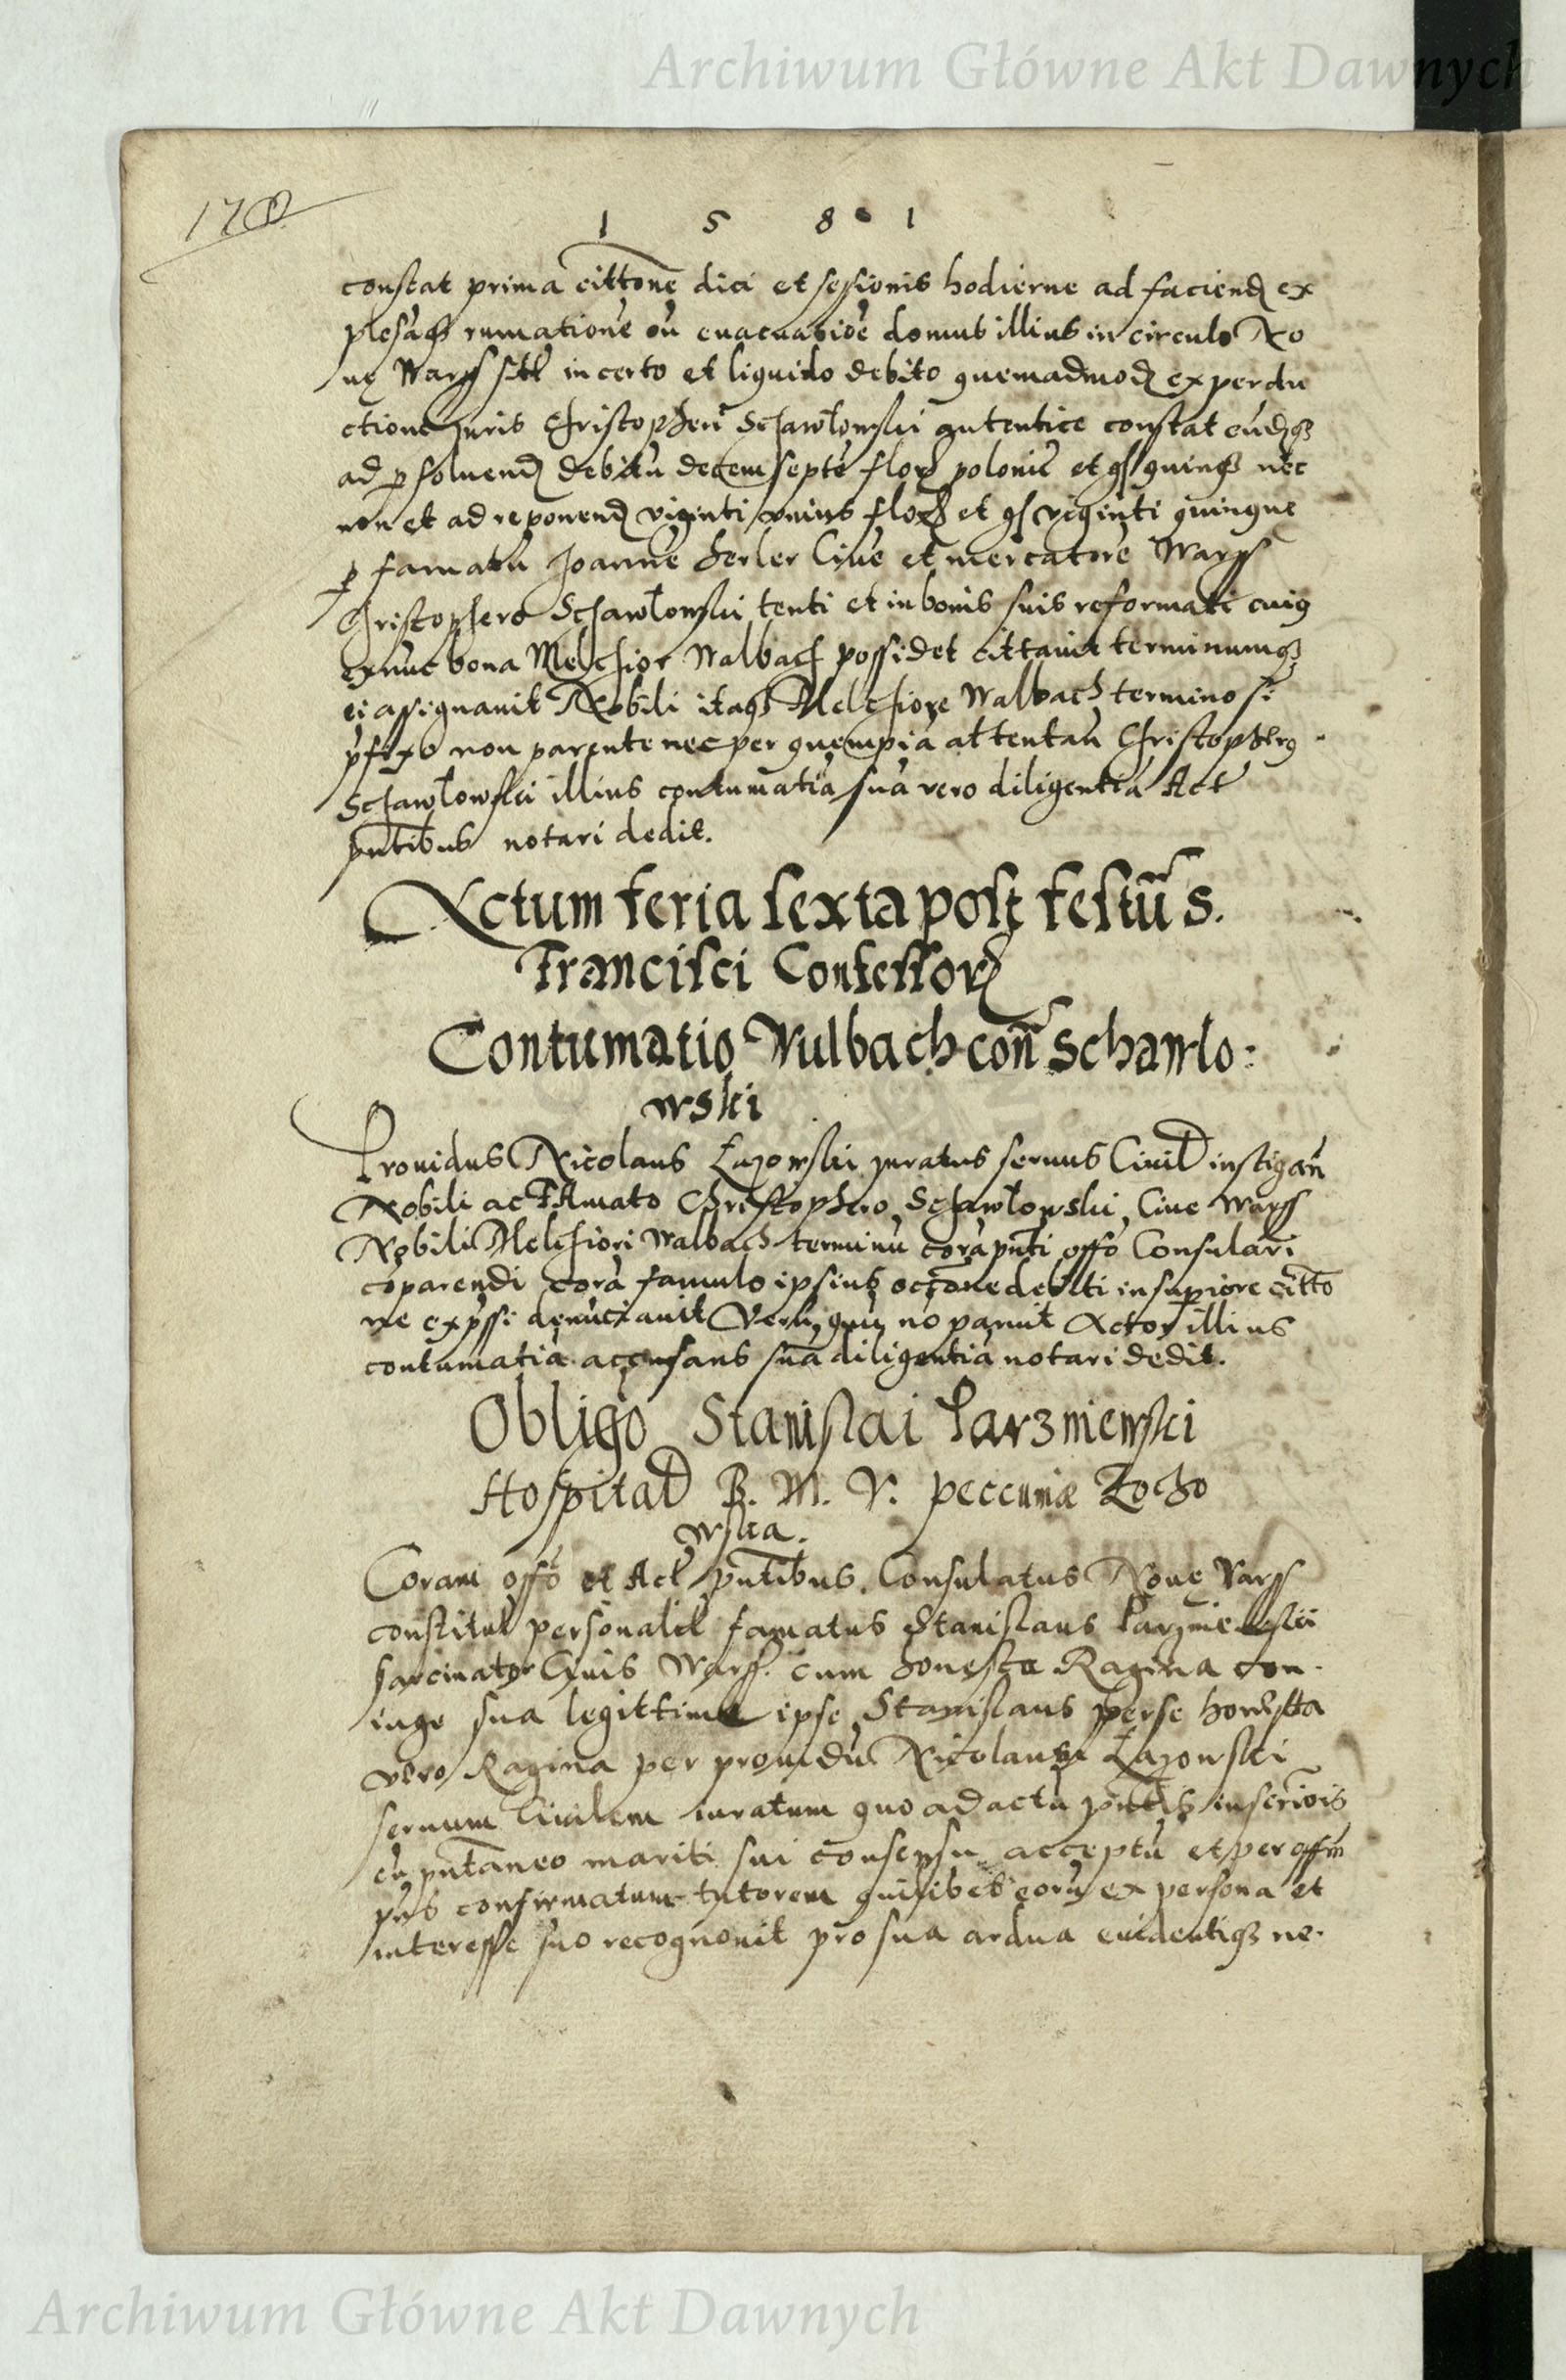 Archiwum Główne Akt Dawnych
1 5 8 1
constat prima cittone dici et sessionis hodierne ad faciend ex
rumatione evacuatioe domus illius in circulo No
ue Warss sitt in certo et liquido debito quemadmod ex perdu
ctione juris Christopheri Schawlowski autentice constat eundq
ad p soluend debitu decem septe flor poloni et gs quinq nec
non et ad reponend viginti unius flor et gs viginti quinque
p famatu Joanne Herler Cive et mercatore Warss
Christophero Schawlowski tenti et in bonis suis reformati cuig
ex nunc bona Melchior Walbach possidet cittauit terminumq
ei assignauit Nobili itaq Melchiore Walbach termino si
pfixo non parente nec per quempia attentan Christopherg
Schawlowski illius contumatia sua vero diligentia Act
pntibus notari dedit.
Actum feria sexta post festu S.
Francisci Confessor
Contumatio Wulbach con Schawlo:
wski
Prouidus Nicolaus Lazowski juratus seruus Ciuil instigan
Nobili ac FAmato Christophero Schawlowski Ciue Warss
Nobili Melchiori Walbach terminu cora pnti offo Consulari
coparendi cora famulo ipsius occone debiti in supiore citto
ne expssi denuctiauit Veru quia no paruit Actor illius
contumatia accusans sua diligentia notari dedit.
Obligo Stanislai Parzniewski
Hospital B. M. V. peccuniæ Zocho
wska.
Coram offo et Act pntibus Consulatus Noue Varss
constitut personalit famatus Stanislaus Parzniewski
sarcinator Ciuis Warss. cum honesta Ragina con-
iuge sua legittima ipse Stanislaus per se honesta
vero Ragina per prouidu Nicolaum Lazowski
seruum Ciuilem iuratum quo ad actu pntis inscriois
cu pntaneo mariti sui consensu acceptu et per offm
pns confirmatum tutorem quilibet eoru ex persona et
interesse suo recognouit pro sua ardua euidentiq ne-
Archiwum Główne Akt Dawnych